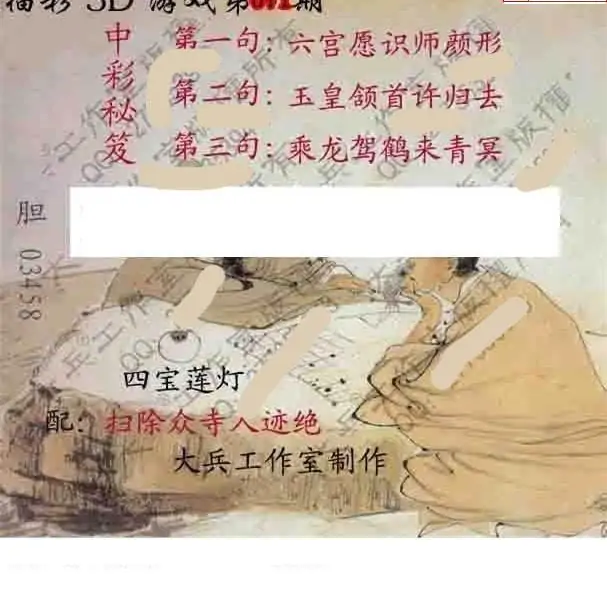 福彩3D游戏第071期
中彩秘笈
第一句：六宫愿识师颜形
第二句：玉皇颔首许归去
第三句：乘龙驾鹤来青冥
胆 03458
四宝莲灯
配：扫除众寺人迹绝
大兵工作室制作